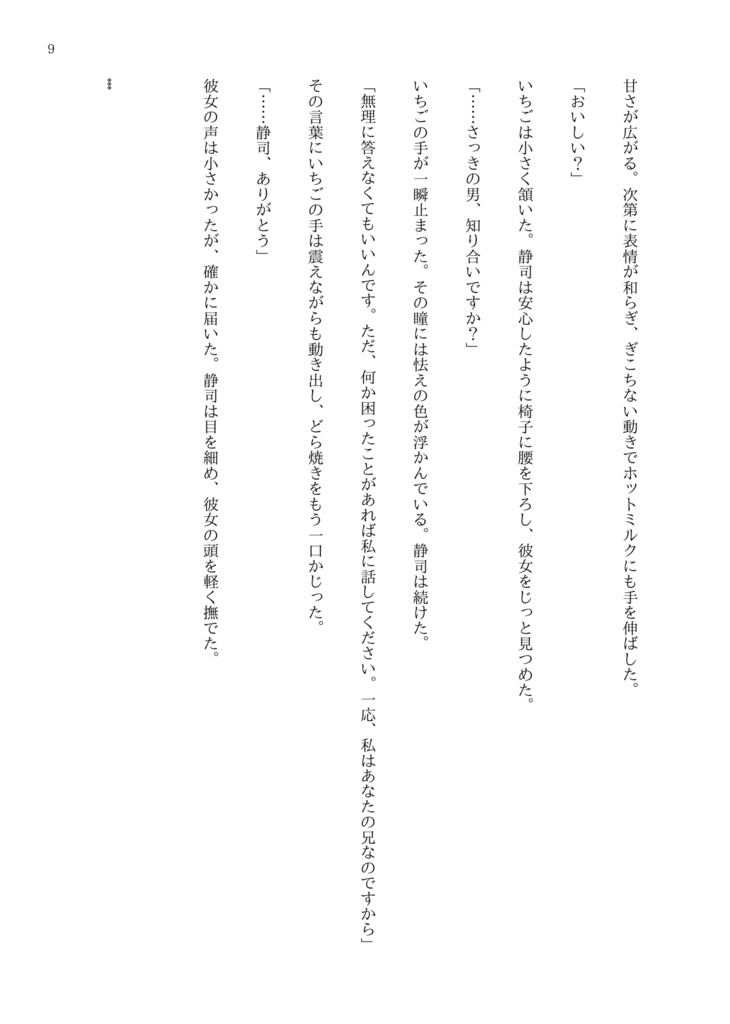 9
甘さが広がる。次第に表情が和らぎ、ぎこちない動きでホットミルクにも手を伸ばした。
「おいしい？」
いちごは小さく頷いた。静司は安心したように椅子に腰を下ろし、彼女をじっと見つめた。
「……さっきの男、知り合いですか？」
いちごの手が一瞬止まった。その瞳には怯えの色が浮かんでいる。静司は続けた。
「無理に答えなくてもいいんです。ただ、何か困ったことがあれば私に話してください。一応、私はあなたの兄なのですから」
その言葉にいちごの手は震えながらも動き出し、どら焼きをもう一口かじった。
「……静司、ありがとう」
彼女の声は小さかったが、確かに届いた。静司は目を細め、彼女の頭を軽く撫でた。
***